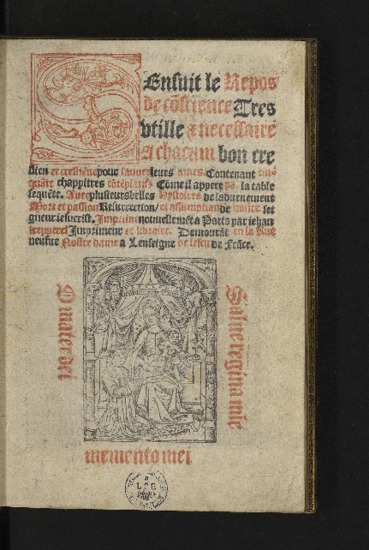 SEnsuit le Repos
de cõscience Tres
vtille & necessaire
A chacum bon cre
stien et crestiẽne pour sauuer leurs ames. Contenant cin
quãte chappitres Cõme il appert la table
sequẽte. Auec plusieurs belles hystoires de laduenement
Mort et passion Resurrection/ et assumption de nostre sei
gneur iesucrist. Imprime nouuellemẽt a Paris par iehan
trepperel Imprimeur et libraire. Demourãt en la Rue
neufue Nostre dame a Lenseigne de lescu de Frãce.
O mater dei
Salue regina mie
memento mei